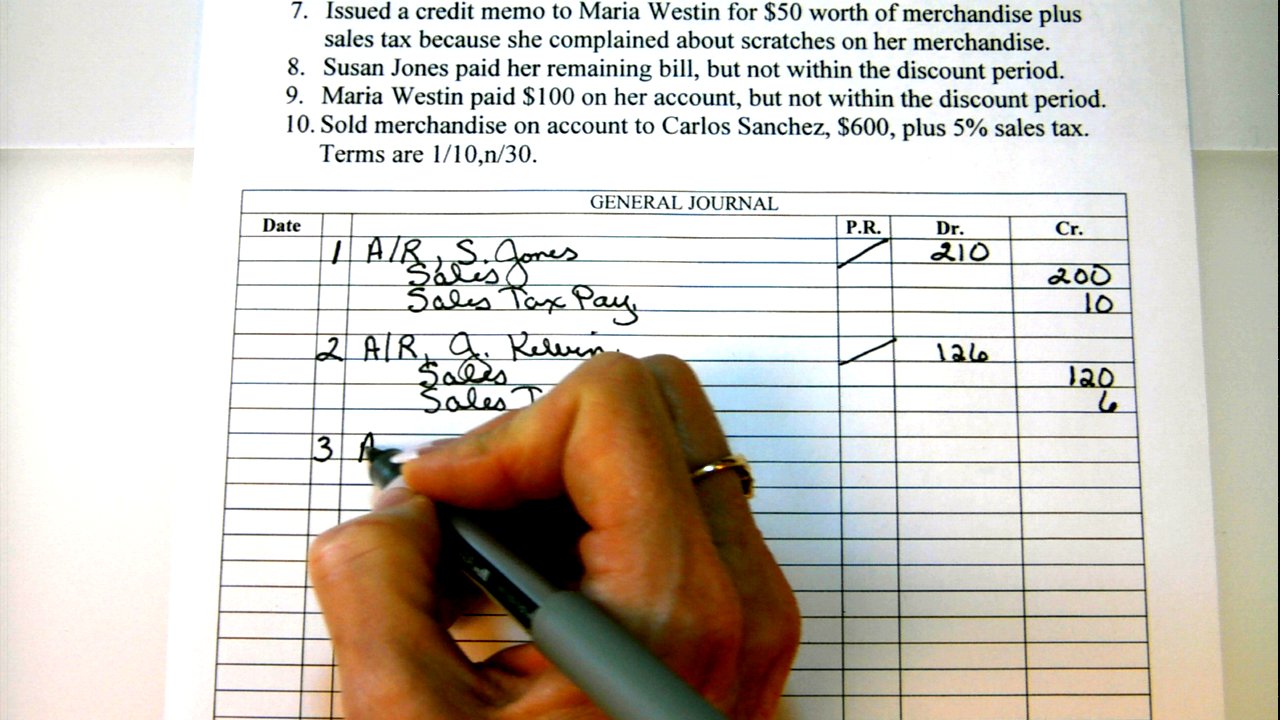 7. Issued a credit memo to Maria Westin for $50 worth of merchandise plus
sales tax because she complained about scratches on her merchandise.
8. Susan Jones paid her remaining bill, but not within the discount period.
9. Maria Westin paid $100 on her account, but not within the discount period.
10. Sold merchandise on account to Carlos Sanchez, $600, plus 5% sales tax.
Terms are 1/10,n/30.
GENERAL JOURNAL
Date P.R. Dr. Cr.
1 A/R, S. Jones 210
Sales 200
Sales Tax Pay. 10
2 A/R, J. Kelvin 126
Sales 120
Sales T 6
3 A